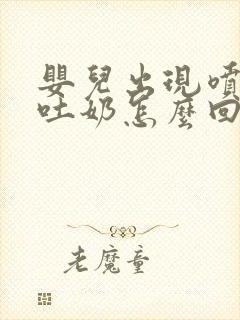 嬰兒出現噴
吐奶怎麼回
老魔童